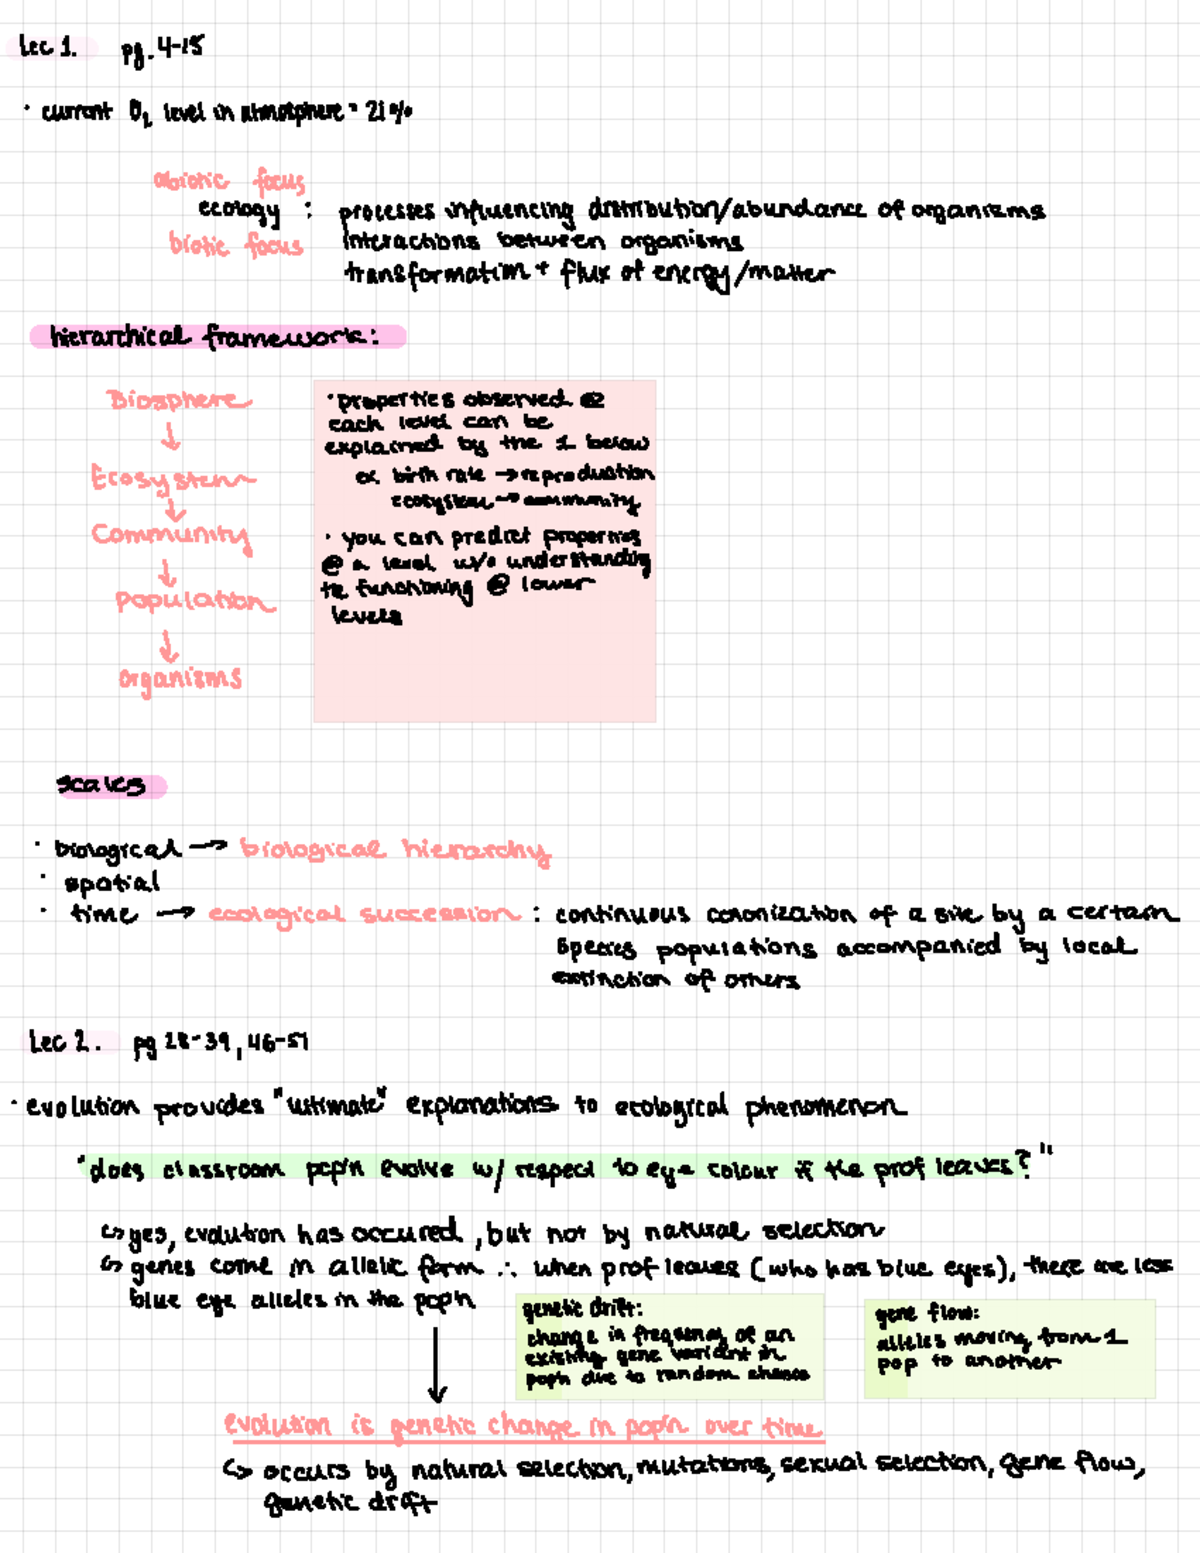 Lec 1. pg. 4-15
· current O₂ level in atmosphere = 21%
abiotic focus
ecology : processes influencing distribution/abundance of organisms
biotic focus interactions between organisms
transformation + flux of energy/matter
hierarchical framework:
Biosphere
↓
Ecosystem
↓
Community
↓
population
↓
organisms
· properties observed @
each level can be
explained by the 1 below
ex birth rate → reproduction
ecosystem → community
· you can predict properties
@ a level w/o understanding
the functioning @ lower
levels
scales
· biological → biological hierarchy
· spatial
· time → ecological succession : continuous colonization of a site by a certain
species populations accompanied by local
extinction of others
Lec 2. pg 28-39, 46-51
· evolution provides "ultimate" explanations to ecological phenomenon
"does classroom pop'n evolve w/ respect to eye colour if the prof leaves?"
↪ yes, evolution has occured, but not by natural selection
↪ genes come in allelic form ∴ when prof leaves (who has blue eyes), there are less
blue eye alleles in the pop'n
genetic drift:
change in frequency of an
existing gene variant in
pop'n due to random chance
gene flow:
alleles moving from 1
pop to another
↓
evolution is genetic change in pop'n over time
↪ occurs by natural selection, mutations, sexual selection, gene flow,
genetic drift